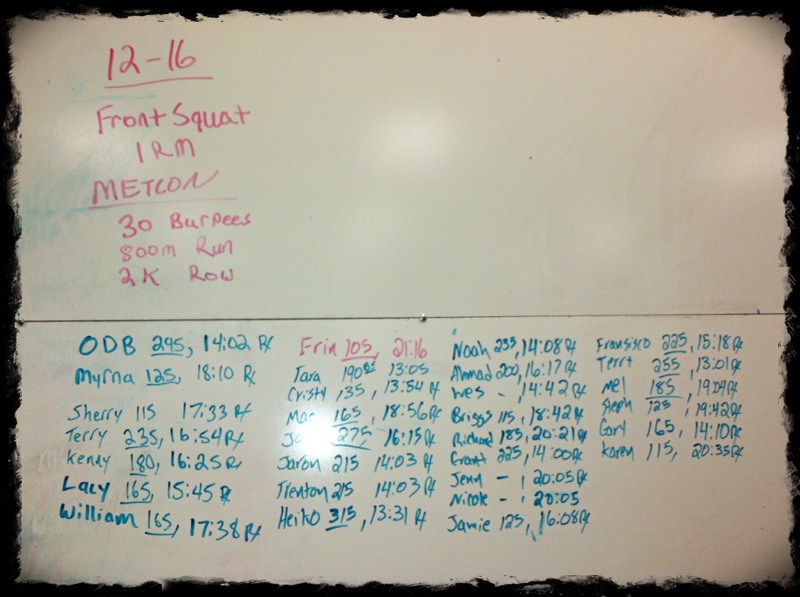 12-16
Front Squat
1 RM
METCON
30 Burpees
800m Run
2K Row
ODB 295, 14:02 Rx
Myrna 125, 18:10 Rx
Sherry 115 17:33 Rx
Terry 235, 16:54 Rx
Kendy 180, 16:25 Rx
Lacy 165, 15:45 Rx
William 165, 17:38 Rx
Erin 105, 21:16
Tara 190 13:05
Cristy 135, 13:54 Rx
Mac 165, 18:56 Rx
275 16:15 Rx
Jaron 215 14:03 Rx
Trenton 215 14:03 Rx
Heiko 315, 13:31 Rx
Noah 235, 14:08 Rx
Ahmad 200, 16:17 Rx
Wes - , 14:42 Rx
Briggs 115, 18:42 Rx
Richard 185, 20:21 Rx
Grant 225, 14:00 Rx
Jenn - , 20:05 Rx
Nicole - , 20:05
Jamie 125, 16:08 Rx
Fransisco 225, 15:18 Rx
Terrt 255, 13:01 Rx
Mel 185, 19:04 Rx
Steph 125, 19:42 Rx
Gary 165, 14:10 Rx
Karen 115, 20:35 Rx